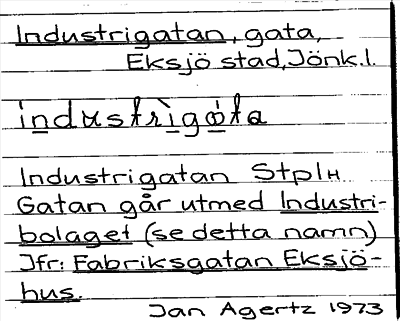 Industrigatan, gata,
Eksjö stad, Jönk. l.
industrigata
Industrigatan Stpln
Gatan går utmed Industri-
bolaget (se detta namn)
Jfr: Fabriksgatan Eksjö-
hus.
Jan Agertz 1973